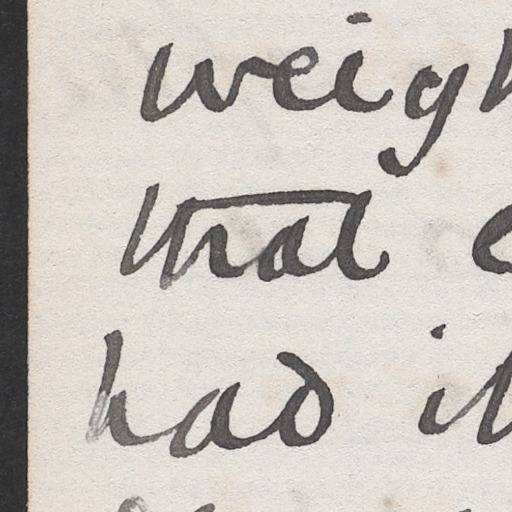 weigh
that
had it